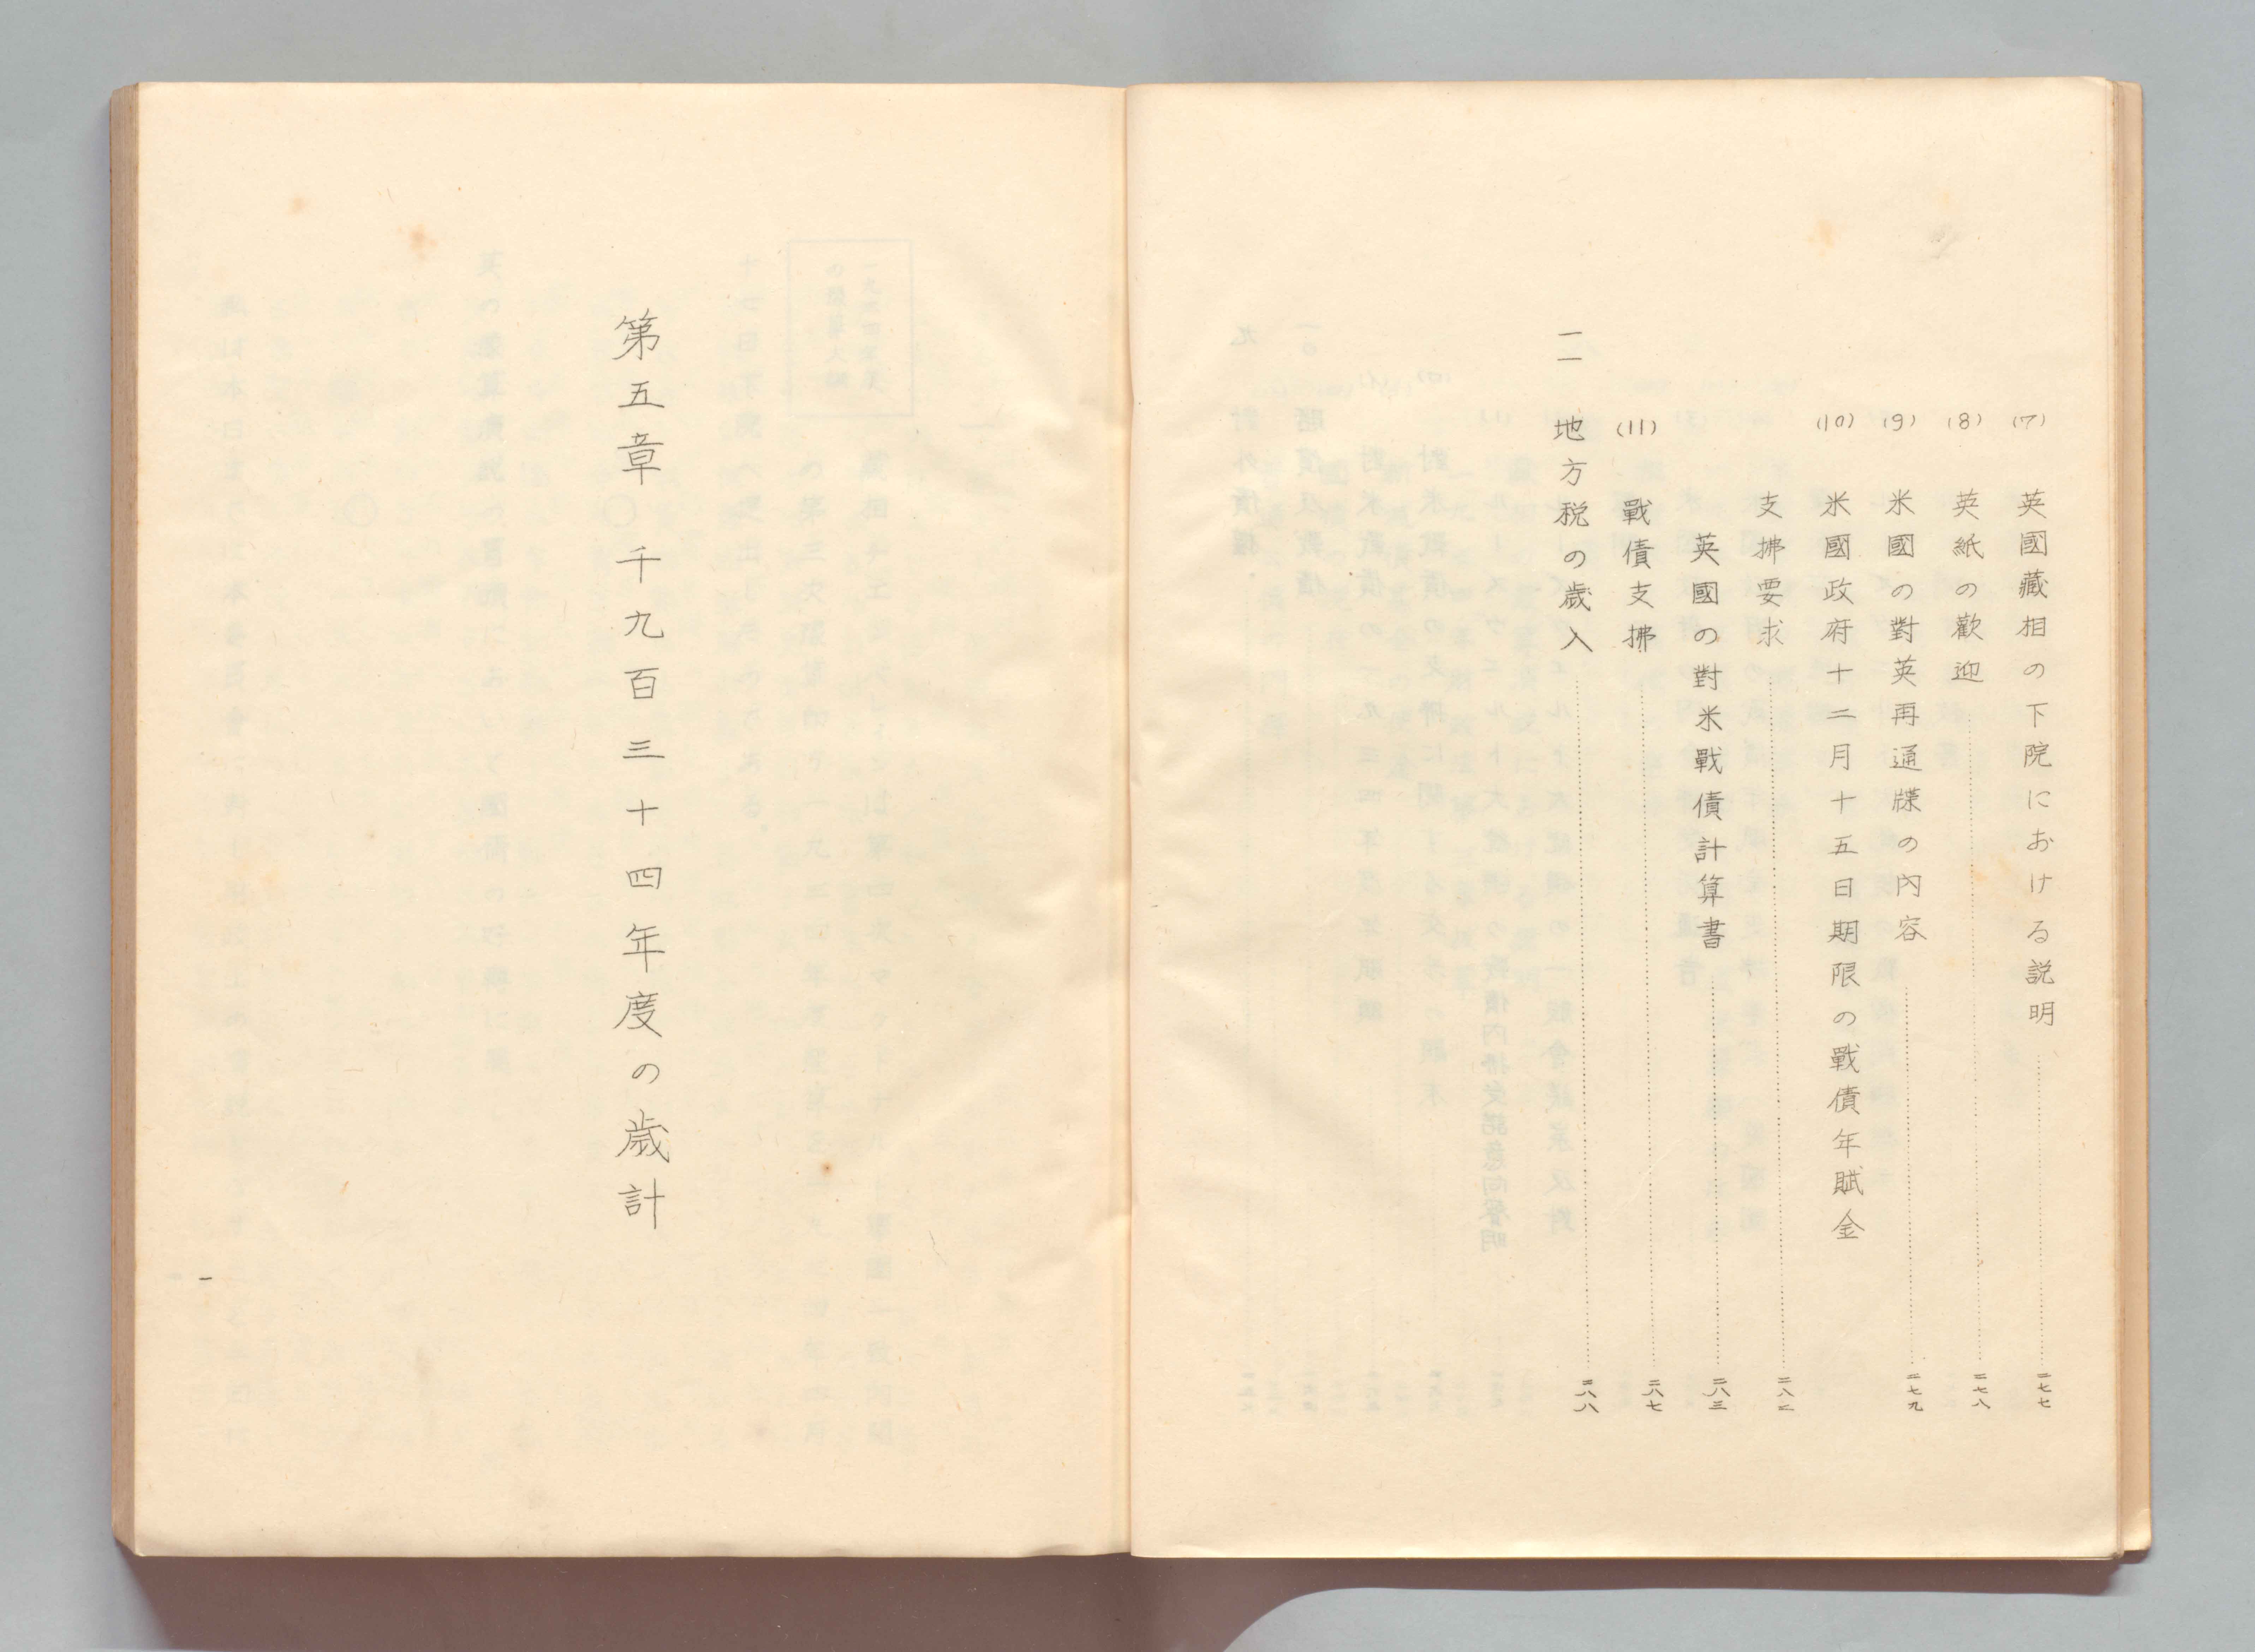 (7) 英國藏相の下院における説明 二七七
(8) 英紙の歡迎 二七八
(9) 米國の對英再通牒の內容 二七九
(10) 米國政府十二月十五日期限の戰債年賦金
支拂要求 二八二
英國の對米戰債計算書 二八三
(11) 戰債支拂 二八七
一一 地方税の歳入 二八八
第五章 千九百三十四年度の歳計
一